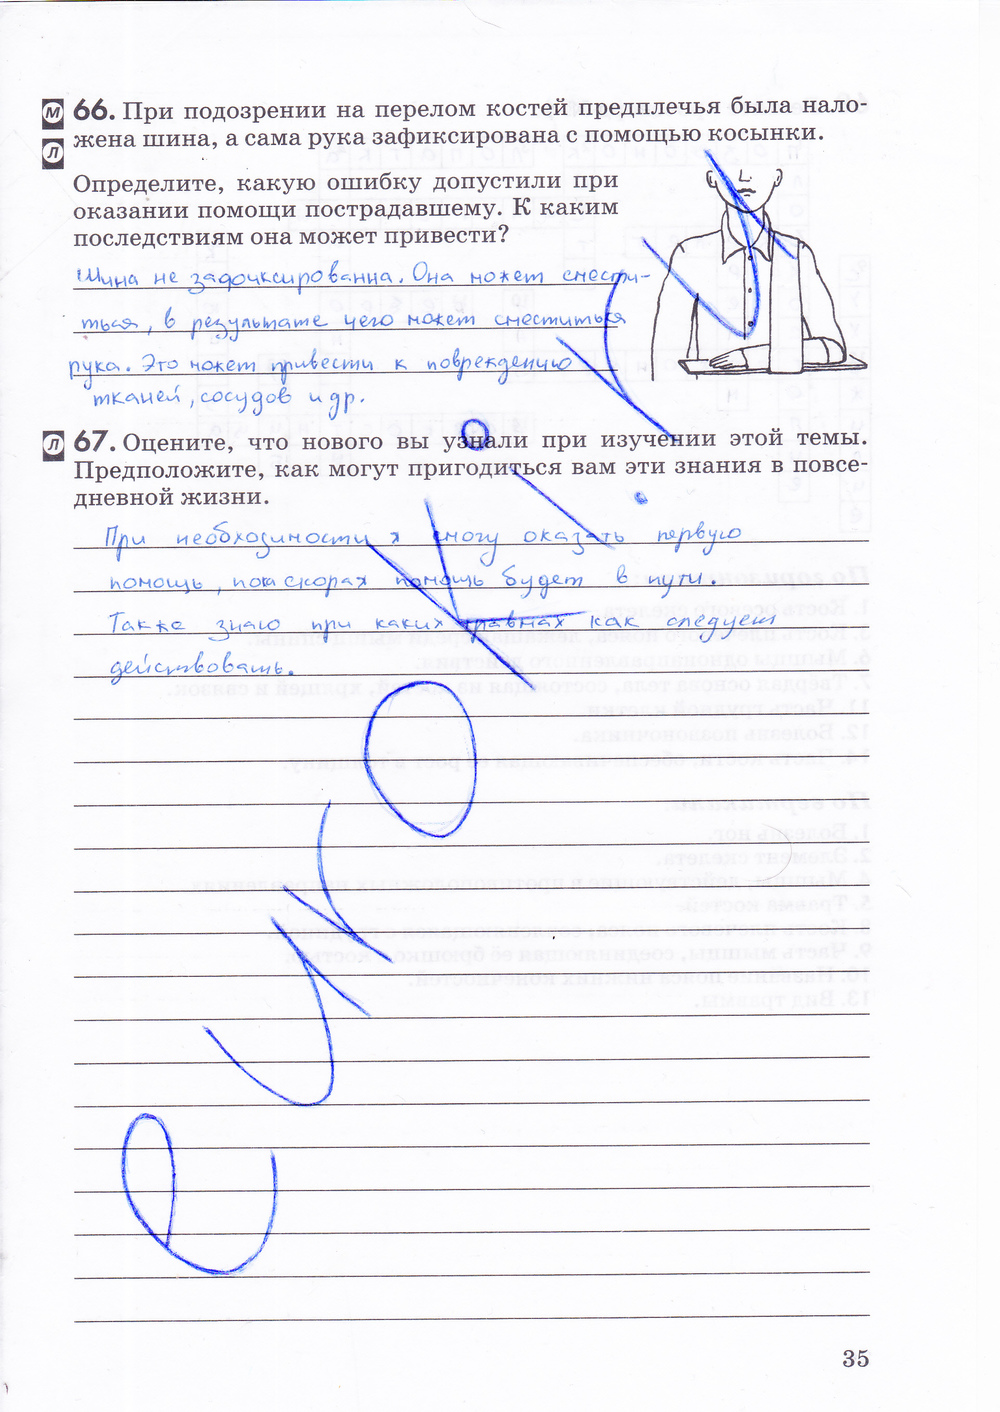 М
66. При подозрении на перелом костей предплечья была нало-
Л
жена шина, а сама рука зафиксирована с помощью косынки.
Определите, какую ошибку допустили при
оказании помощи пострадавшему. К каким
последствиям она может привести?
Шина не зафиксированна. Она может смести-
ться, в результате чего может сместиться
рука. Это может привести к повреждению
тканей, сосудов и др.
Л
67. Оцените, что нового вы узнали при изучении этой темы.
Предположите, как могут пригодиться вам эти знания в повсе-
дневной жизни.
При необходимости я смогу оказать первую
помощь, пока скорая помощь будет в пути.
Также знаю при каких травмах как следует
действовать.
euroki
35